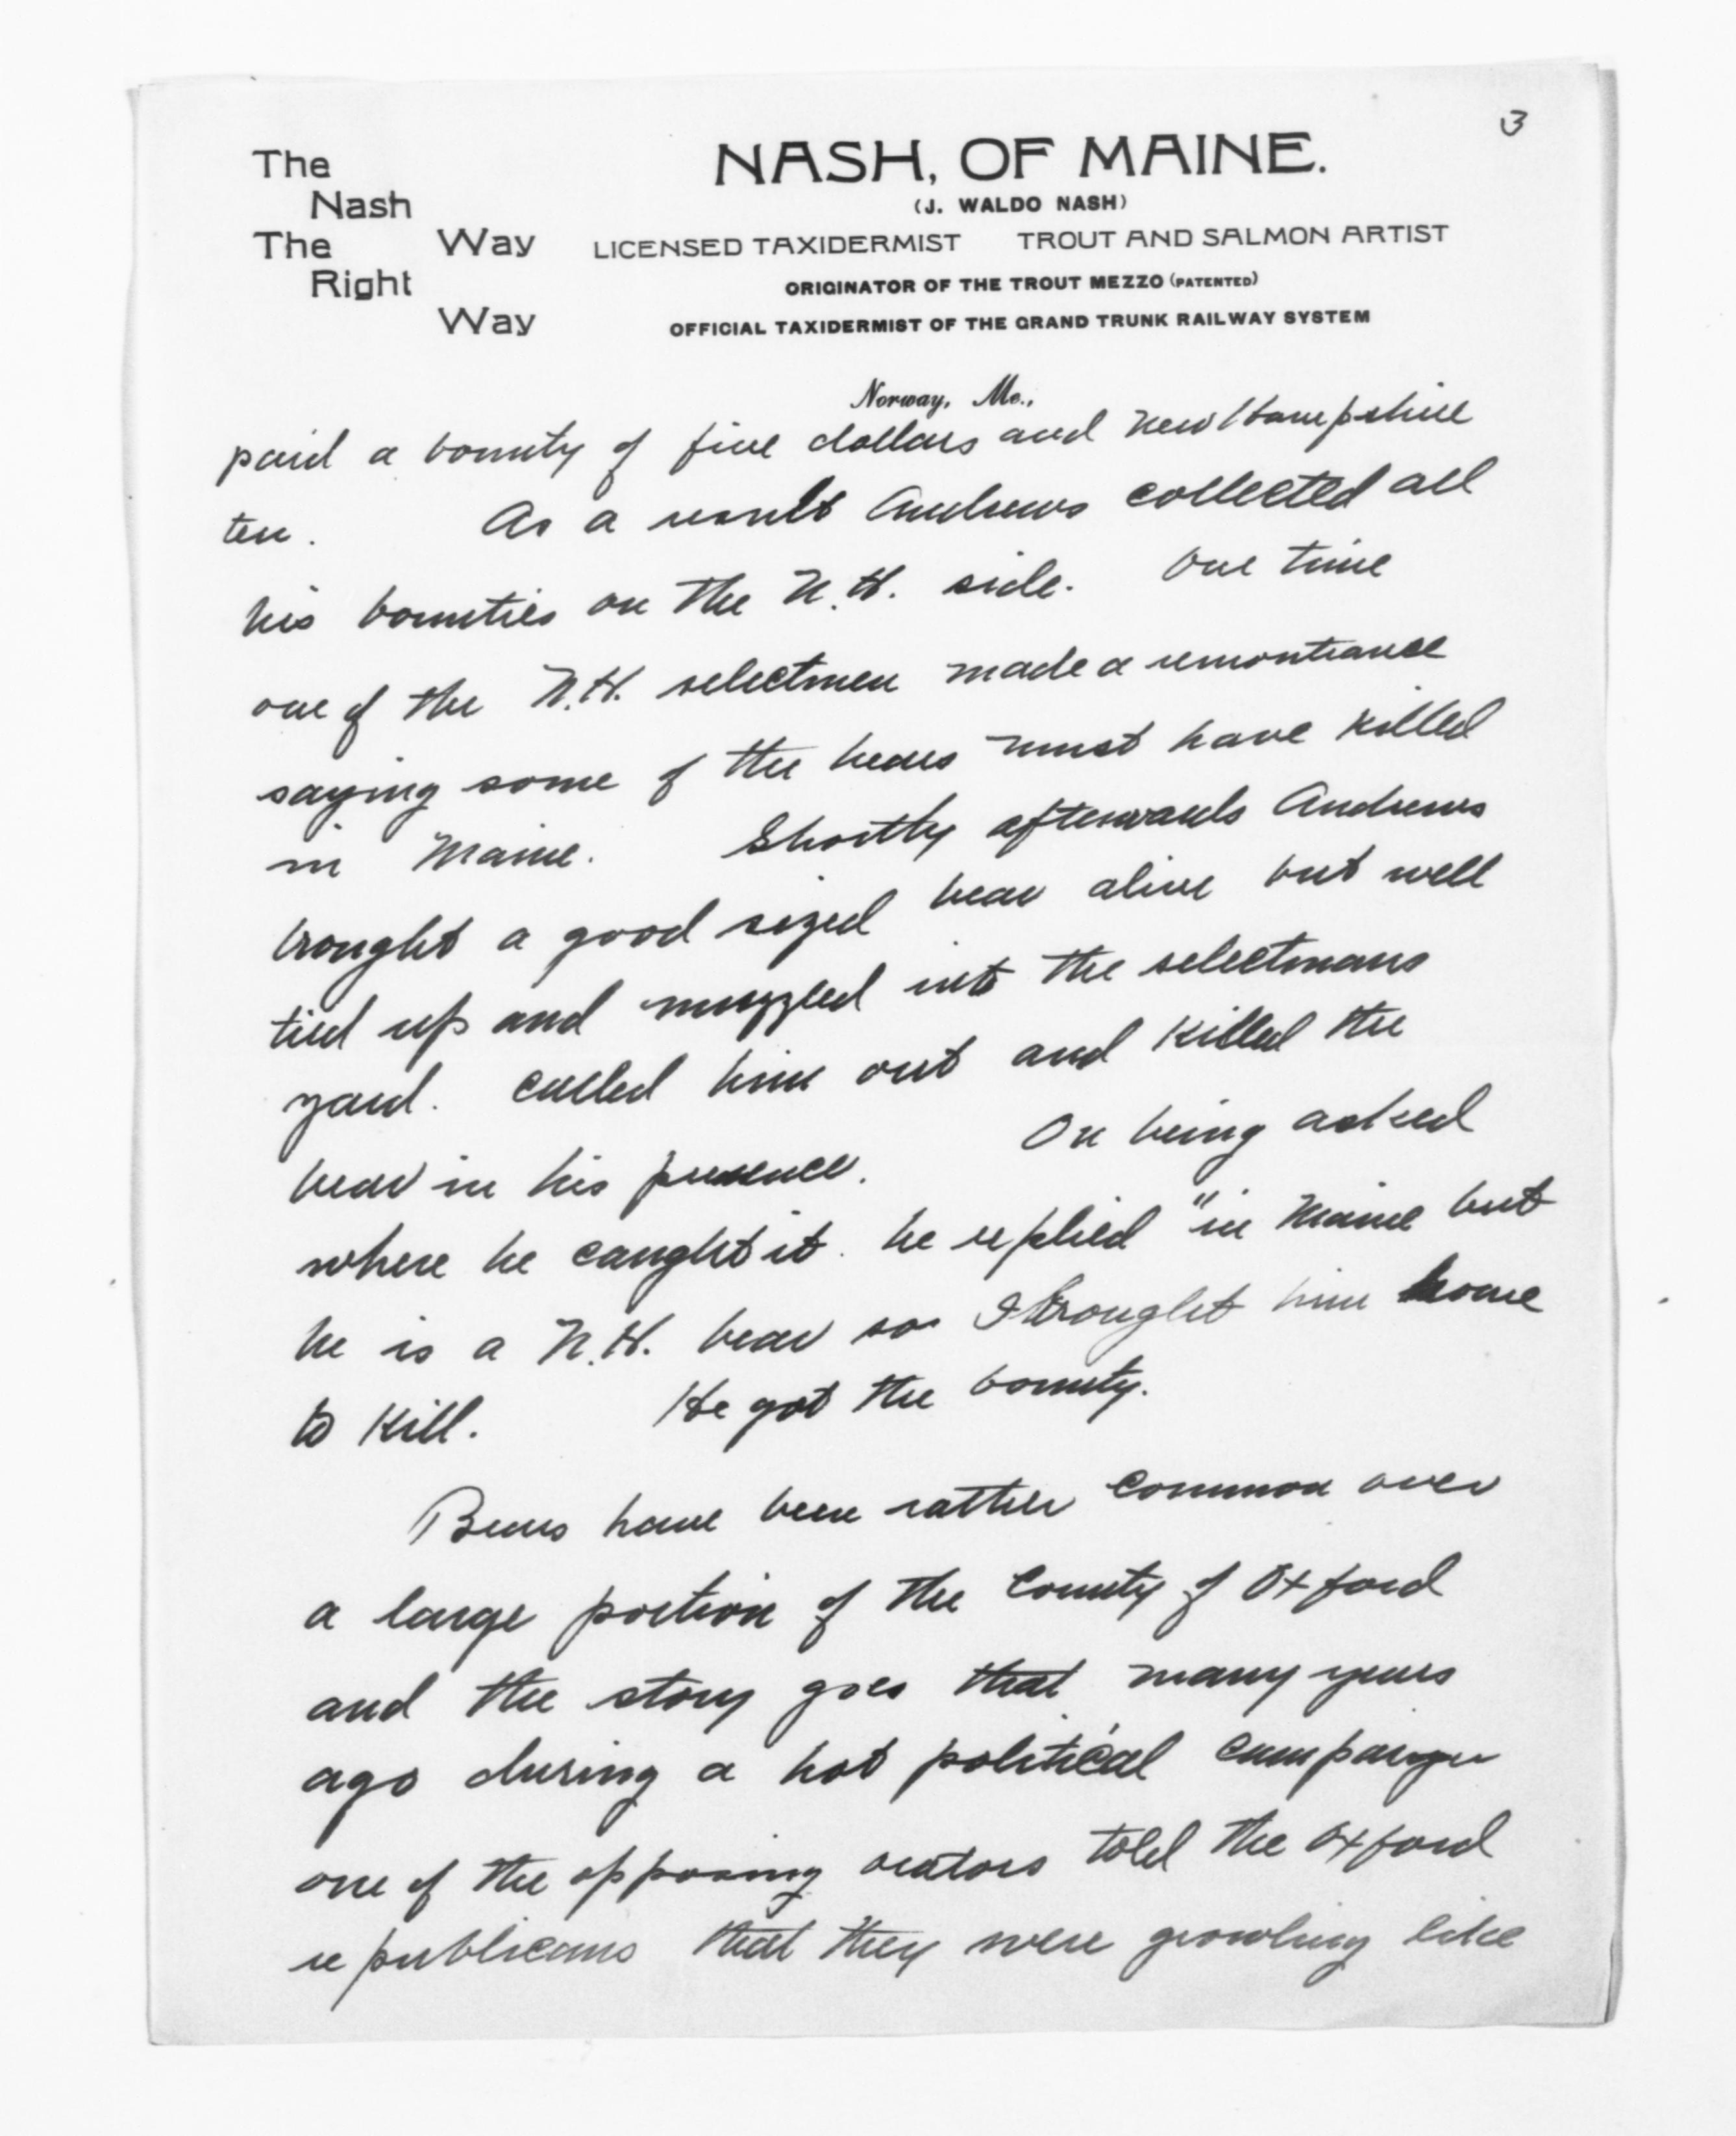 3
The
Nash
The Way
Right
Way
NASH, OF MAINE.
(J. WALDO NASH)
LICENSED TAXIDERMIST TROUT AND SALMON ARTIST
ORIGINATOR OF THE TROUT MEZZO (PATENTED)
OFFICIAL TAXIDERMIST OF THE GRAND TRUNK RAILWAY SYSTEM
Norway, Me.,
paid a bounty of five dollars and New Hampshire
ten. As a result Andrews collected all
his bounties on the N.H. side. One time
one of the N.H. selectmen made a remontrance
saying some of the bears must have killed
in Maine. Shortly afterwards Andrews
brought a good sized bear alive but well
tied up and muzzled into the selectmans
yard. called him out and killed the
bear in his presence. On being asked
where he caught it. he replied "in Maine but
he is a N.H. bear so I brought him home
to kill. He got the bounty.
Bears have been rather common over
a large portion of the County of Oxford
and the story goes that many years
ago during a hot political campaign
one of the opposing orators told the Oxford
republicans that they were growling like